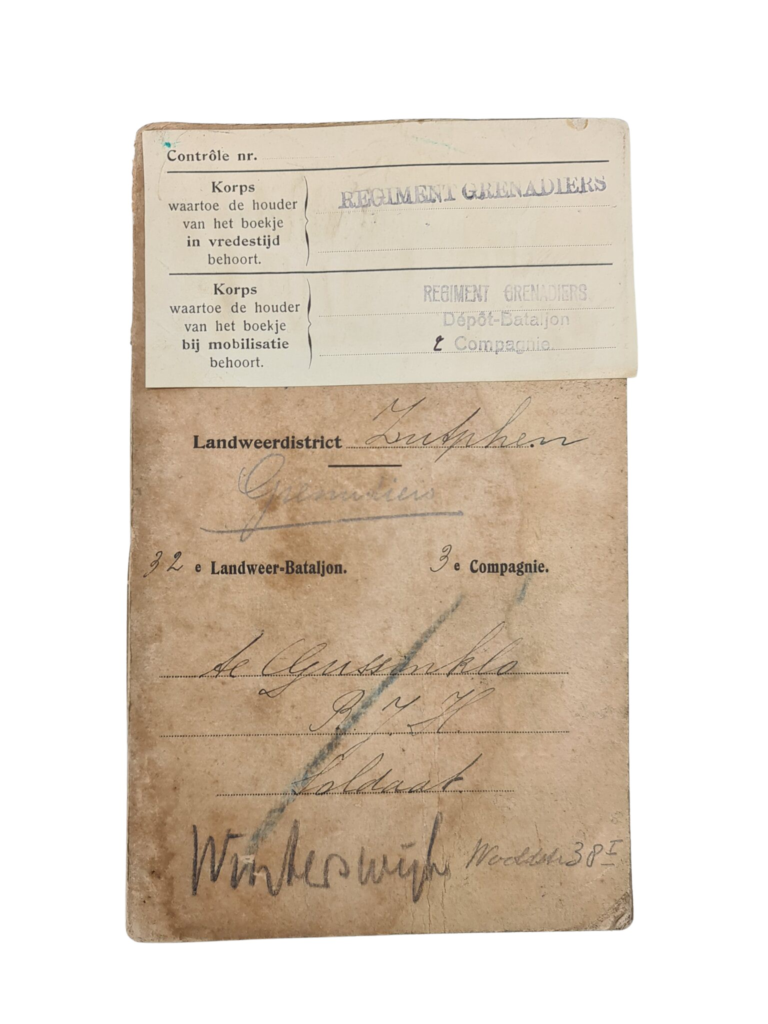 Contrôle nr.
Korps
waartoe de houder
van het boekje
in vredestijd
behoort.
REGIMENT GRENADIERS
Korps
waartoe de houder
van het boekje
bij mobilisatie
behoort.
REGIMENT GRENADIERS
Dépôt-Bataljon
2 Compagnie.
Landweerdistrict Zutphen
Grenadiers
32 e Landweer-Bataljon. 3 e Compagnie.
te Gussinklo
B. J. H.
Soldaat.
Winterswijk 38 I